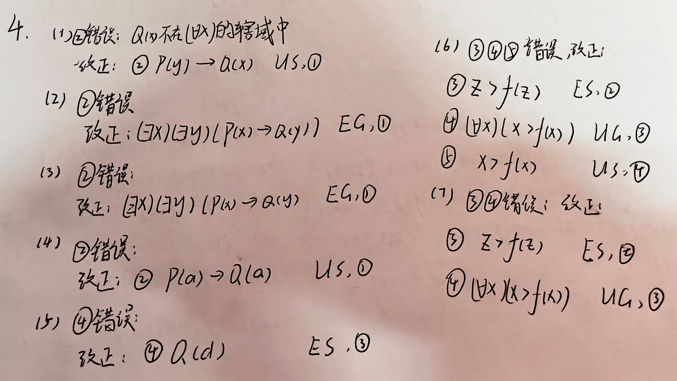 4. (1) ②错误: Q(x)不在(∀x)的辖域中
改正: ② P(y)→Q(x) US,①
(2) ②错误
改正: (∃x)(∃y)(P(x)→Q(y)) EG,①
(3) ②错误:
改正: (∃x)(∃y)(P(x)→Q(y) EG,①
(4) ②错误:
改正: ② P(a)→Q(a) US,①
(5) ④错误:
改正: ④ Q(d) ES,③
(6) ③④⑤错误,改正:
③ Z>f(z) ES,②
④ (∀x)(x>f(x)) UG,③
⑤ x>f(x) US,④
(7) ③④错误: 改正:
③ Z>f(z) ES,②
④ (∀x)(x>f(x)) UG,③